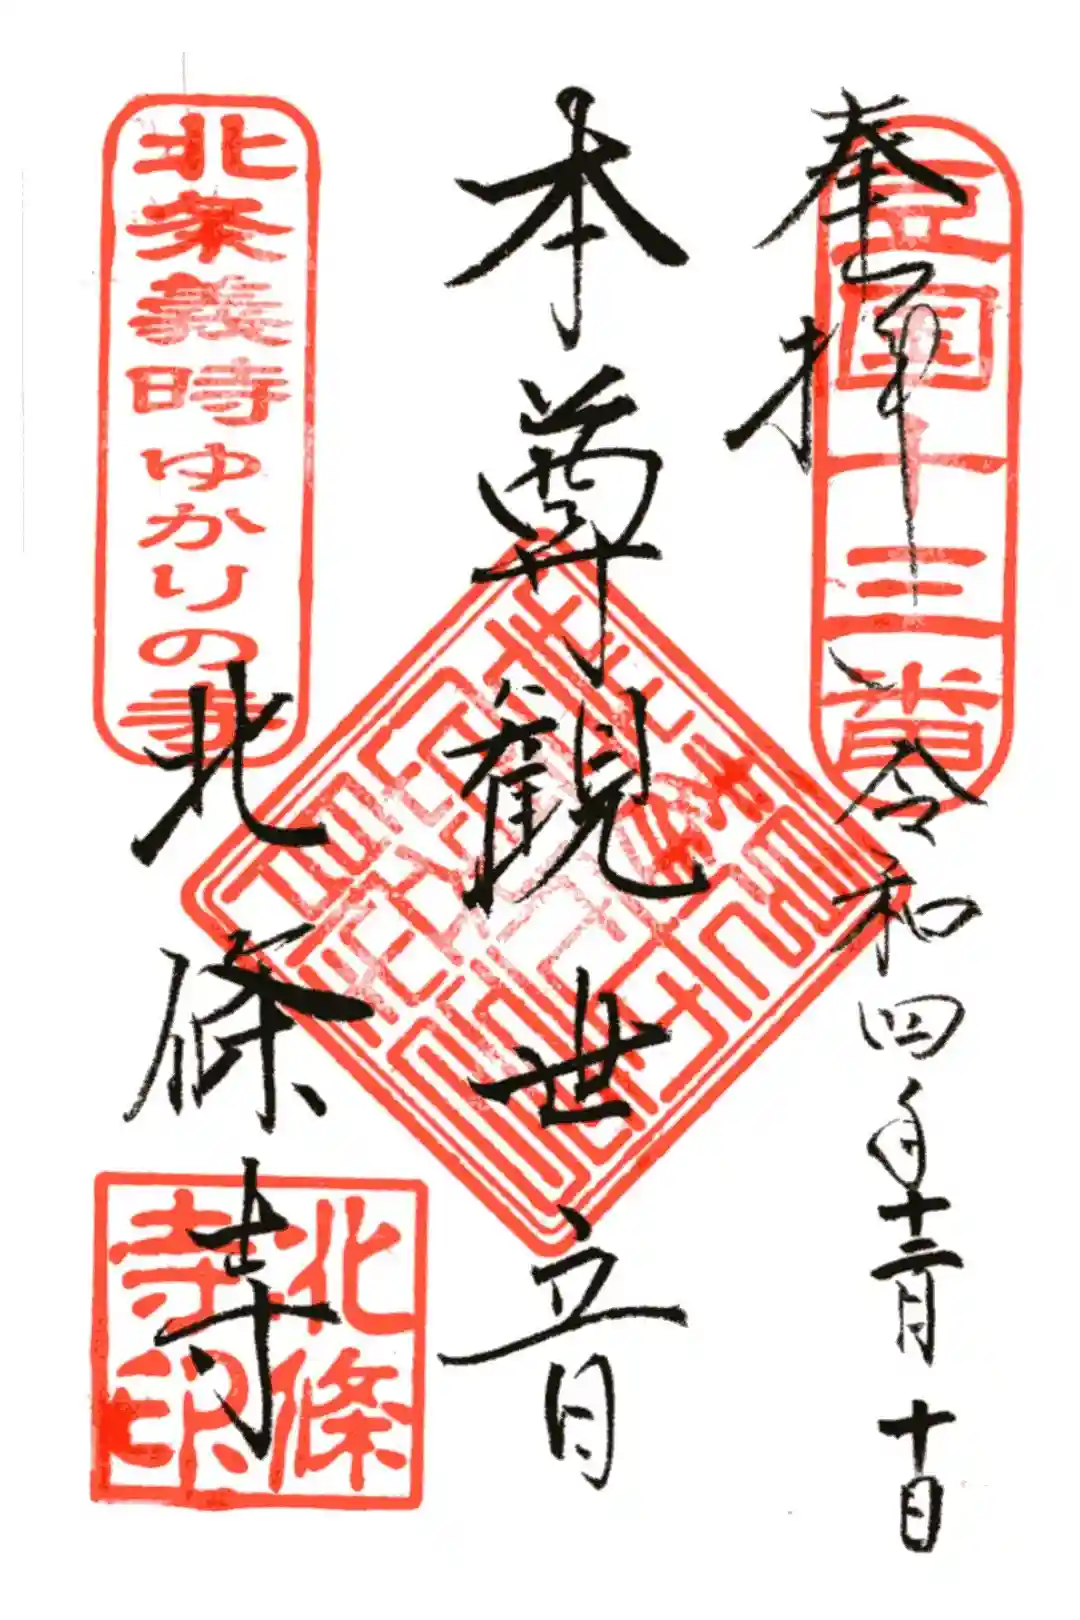 奉拝
豆国十三番
令和四年十二月十日
本尊観世音
北条義時ゆかりの寺
北條寺
北條寺印